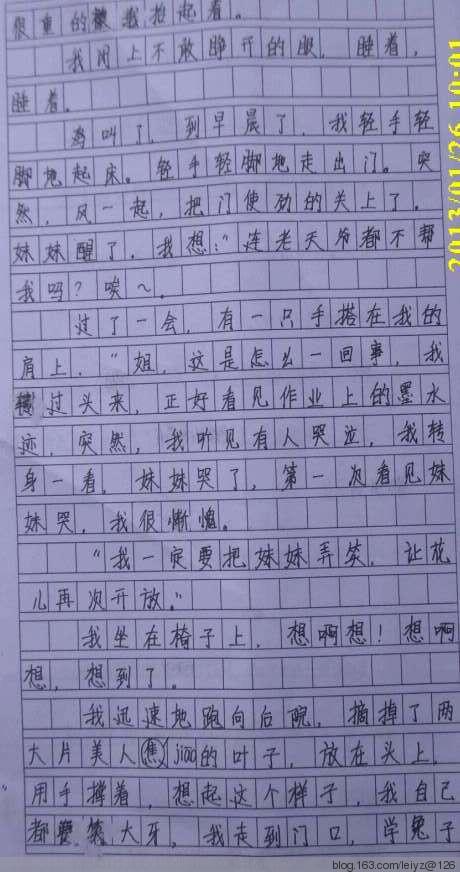 很重的被我抬起着。
我闭上不敢睁开的眼，睡着，
睡着。
鸡叫了，到早晨了，我轻手轻
脚地起床。轻手轻脚地走出门。突
然，风一起，把门使劲的关上了。
妹妹醒了，我想：“连老天爷都不帮
我吗？唉～。
过了一会，有一只手搭在我的
肩上，“姐，这是怎么一回事，我
转过头来，正好看见作业上的墨水
迹，突然，我听见有人哭泣，我转
身一看，妹妹哭了，第一次看见妹
妹哭，我很惭愧。
“我一定要把妹妹弄笑，让花
儿再次开放。”
我坐在椅子上，想啊想！想啊
想，想到了。
我迅速地跑向后院，摘掉了两
大片美人蕉jiao的叶子，放在头上，
用手撑着，想起这个样子，我自己
都 笑大牙，我走到门口，学兔子
2013/01/26 10:01
blog.163.com/leiyz@126